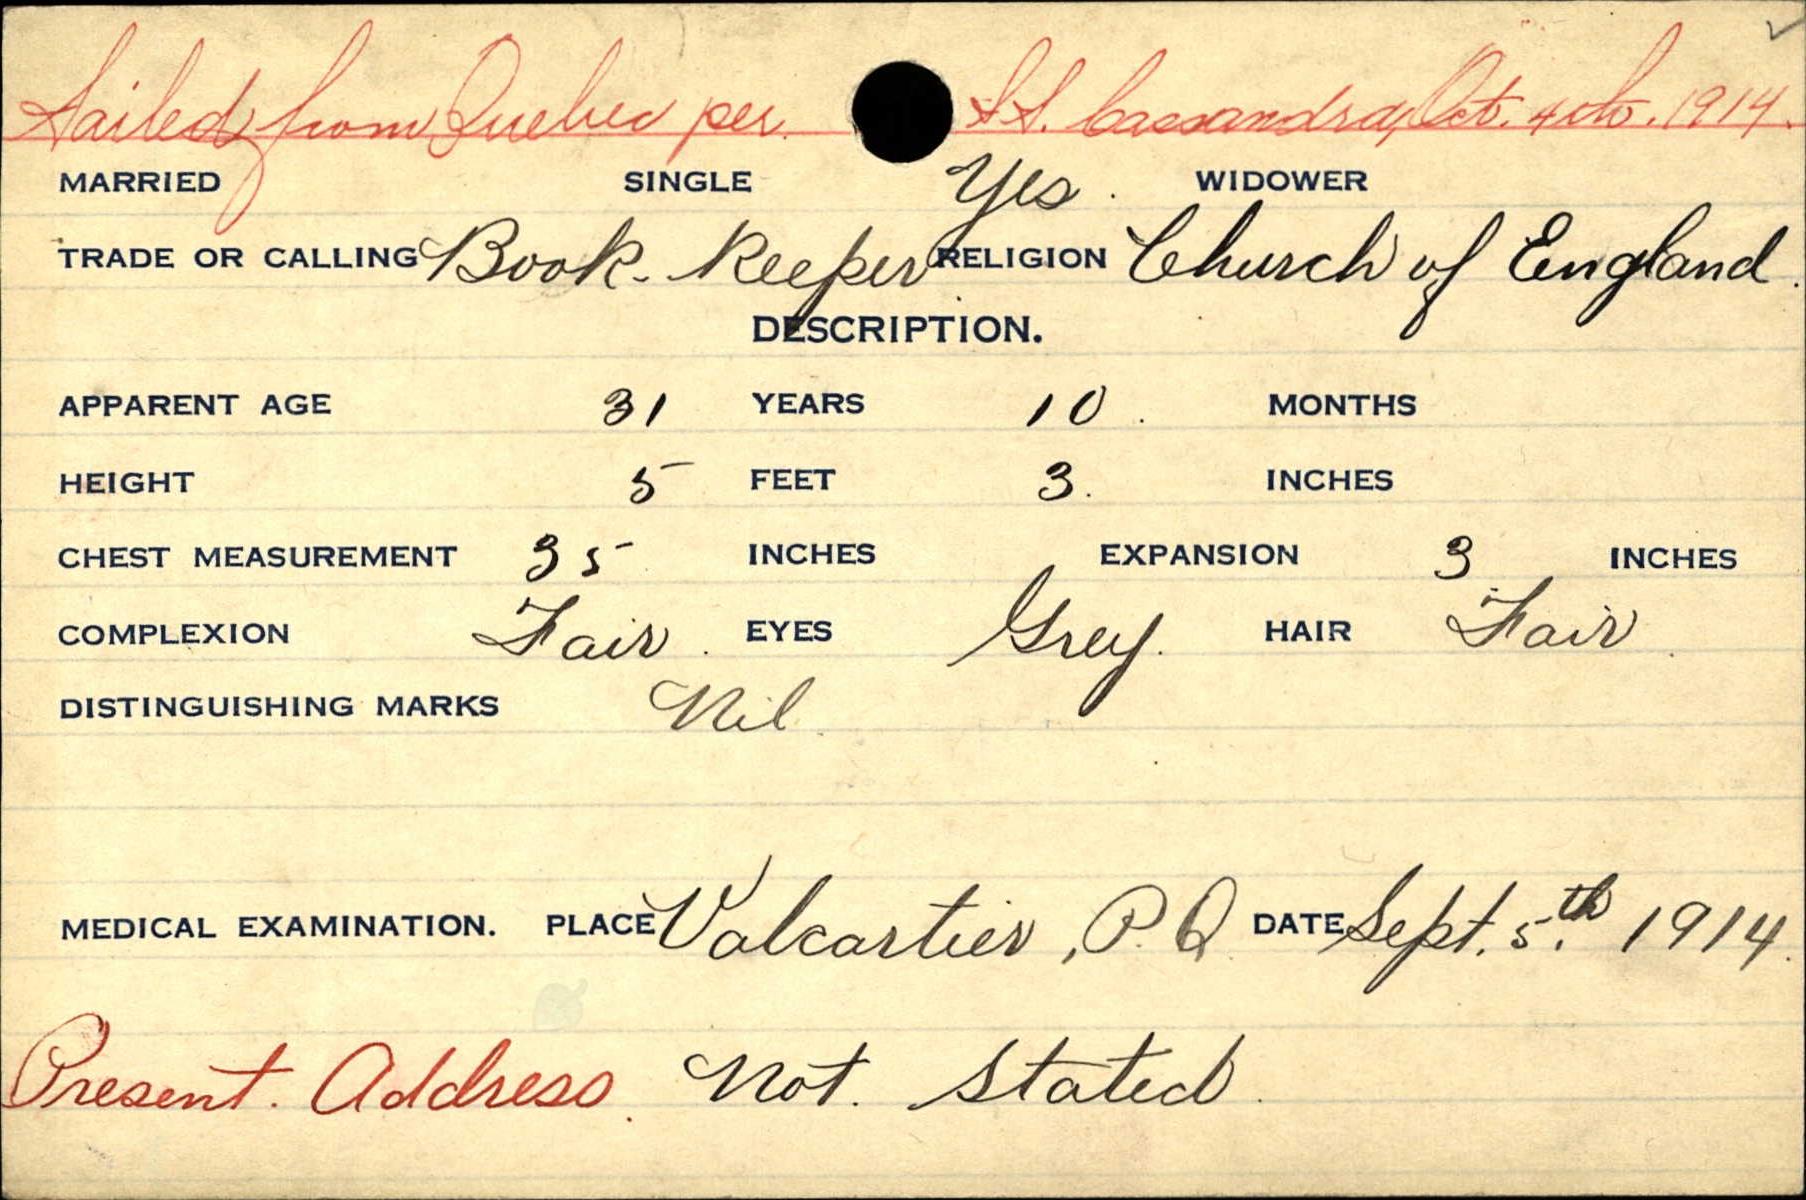 Sailed from Quebec per. S.S. Cassandra, Oct. 4th. 1914.
MARRIED SINGLE Yes. WIDOWER
TRADE OR CALLING Book-Keeper RELIGION Church of England.
DESCRIPTION.
APPARENT AGE 31 YEARS 10. MONTHS
HEIGHT 5 FEET 3. INCHES
CHEST MEASUREMENT 35 INCHES EXPANSION 3 INCHES
COMPLEXION Fair. EYES Grey. HAIR Fair.
DISTINGUISHING MARKS Nil.
MEDICAL EXAMINATION. PLACE Valcartier, P.Q. DATE Sept. 5th 1914.
Present. Address. Not. Stated.